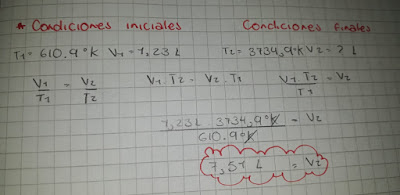 * Condiciones iniciales Condiciones finales
T1= 610.9°K V1= 1,23 L T2= 3734,9°K V2= ? L
V1/T1 = V2/T2 V1 . T2 = V2 . T1 V1 . T2/T1 = V2
1,23L 3734,9°K/610.9°K = V2
7,51 L = V2